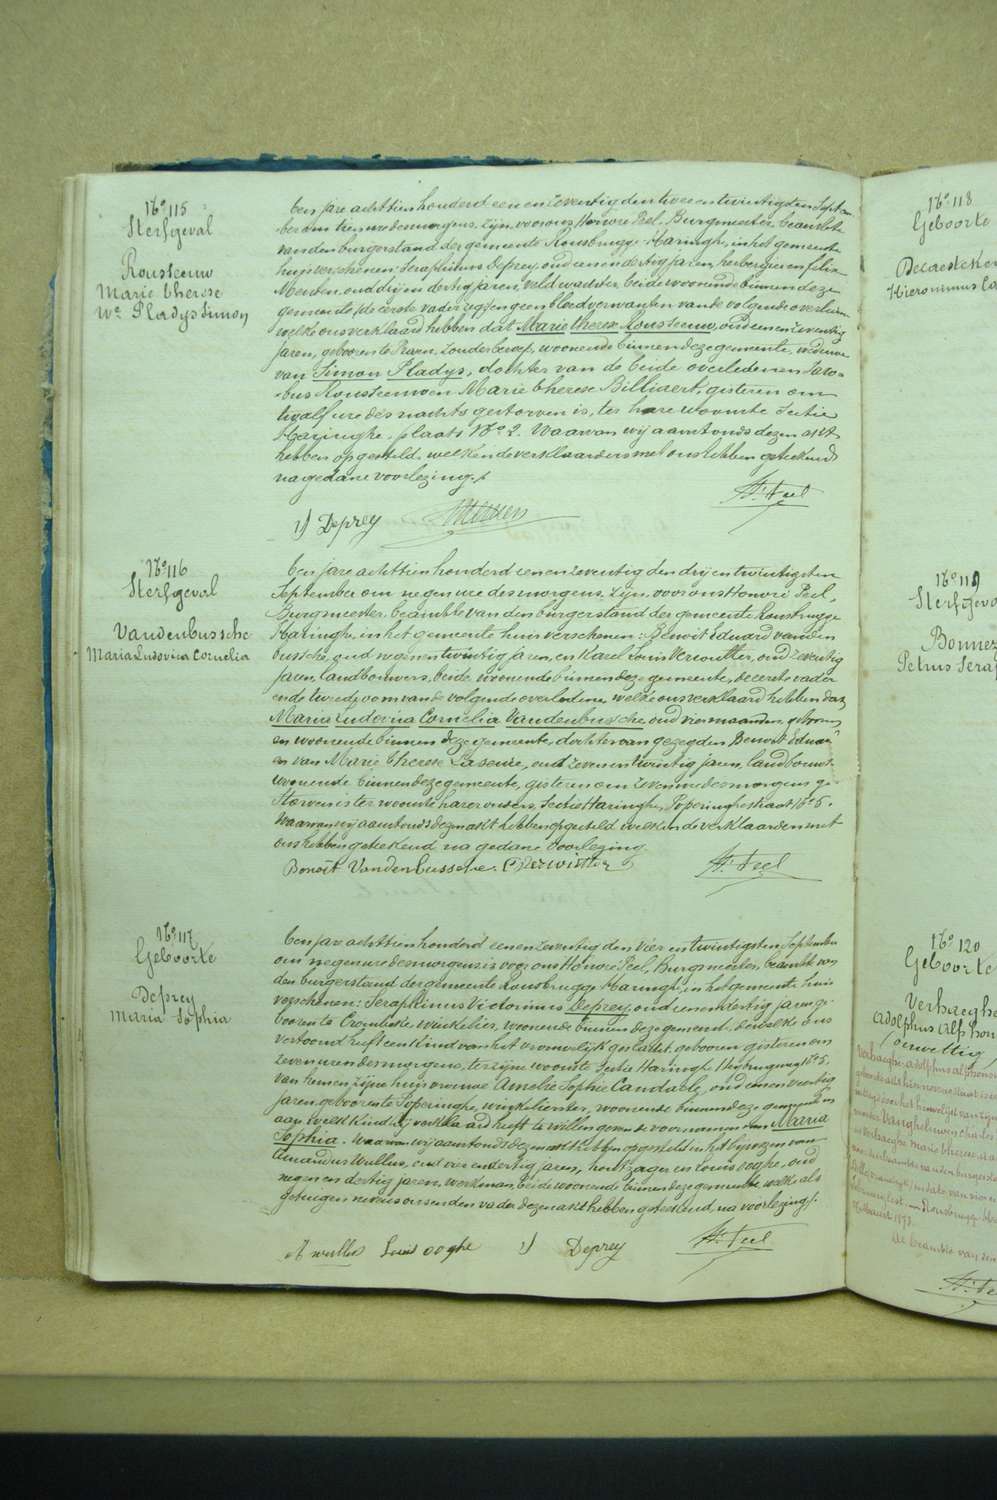 No 115
Sterfgeval
Rousseeuw
Marie Therese
We Pladys Simon
Een jare achttien honderd een en zeventig den twee en twintigsten Septem-
ber om tien ure des morgens, zijn voor ons Honoré Peel, Burgmeester, beambte
van den burgerstand der gemeente Rousbrugge-Haringhe, in het gemeente
huis verschenen: Seraphinus Deprey, oud een en dertig jaren, herbergier en Felix
Meuten, oud drij en dertig jaren, veldwachter, beide woonende binnen deze
gemeente, de eerste vader zegsen geen bloedverwanten van de volgende overledene
welke ons verklaard hebben dat Marie Therese Rousseeuw, oud een en zeventig
jaren, geboren te Proven, zonder beroep, woonende binnen deze gemeente, weduwe
van Simon Pladys, dochter van de beide overledenen Jaco-
bus Rousseeuw en Marie Therese Billiaert, gisteren om
twaalf ure des nachts gestorven is, ter hare woonste Sectie
Haringhe, plaats No 2. Waarvan wij aanstonds dezen akt
hebben opgesteld, welken de verklaarders met ons hebben geteekend
na gedane voorlezing./.
Deprey
H. Peel
No 116
Sterfgeval
Vandenbussche
Maria Ludovica Cornelia
Een jare achttien honderd een en zeventig den drij en twintigsten
September om negen ure des morgens, zijn voor ons Honoré Peel,
Burgmeester, beambte van den burgerstand der gemeente Rousbrugge
Haringhe, in het gemeente huis verschenen: Benoit Eduard Vanden
bussche, oud negen en twintig jaren, en Karel Louis Verwitter, oud zeventig
jaren, landbouwers, beide woonende binnen deze gemeente, de eerste vader
en de tweede oom van de volgende overledene, welke ons verklaard hebben dat
Maria Ludovica Cornelia Vandenbussche, oud vier maanden, geboren
en woonende binnen deze gemeente, dochter van gezegden Benoit Eduard
en van Marie Therese Laseure, oud zeven en twintig jaren, landbouwster
woonende binnen deze gemeente, gisteren om zeven ure des morgens ge-
storven is ter woonste harer ouders, Sectie Haringhe, Poperinghestraat No 6.
Waarvan wij aanstonds dezen akt hebben opgesteld welken de verklaarders met
ons hebben geteekend na gedane voorlezing
Benoit Vandenbussche. Verwitter
H. Peel
No 117
Geboorte
Deprey
Maria Sophia
Een jare achttien honderd een en zeventig den vier en twintigsten September
om negen ure des morgens is voor ons Honoré Peel, Burgmeester, beambte van
den burgerstand der gemeente Rousbrugge-Haringhe, in het gemeente huis
verschenen: Seraphinus Victorinus Deprey, oud een en dertig jaren, ge-
boren te Crombeke, winkelier, woonende binnen deze gemeente, dewelke ons
vertoond heeft een kind van het vrouwelijk geslacht, geboren gisteren om
zeven uren des morgens, ter zijne woonste Sectie Haringhe No 6,
van hem en zijne huisvrouwe Amelie Sophie Candaele, oud een en veertig
jaren, geboren te Poperinghe, winkelierster, woonende binnen deze gemeente en
aan welk kind hij verklaard heeft te willen geven de voornamen van Maria
Sophia. Waarvan wij aanstonds dezen akt hebben opgesteld in het bijwezen van
Amandus Wullus, oud vier en dertig jaren, houtzager en Louis Ooghe, oud
negen en dertig jaren, werkman, beide woonende binnen deze gemeente, welke als
getuigen nevens ons en den vader dezen akt hebben geteekend, na voorlezing./.
A Wullus Louis Ooghe Deprey H. Peel
No 118
Geboorte
Hieronimus
No 119
Sterfgeva
Bonnez
Petrus Sera
No 120
Geboorte
Verhaeghe
Adolphus Alphon
(onwettig)